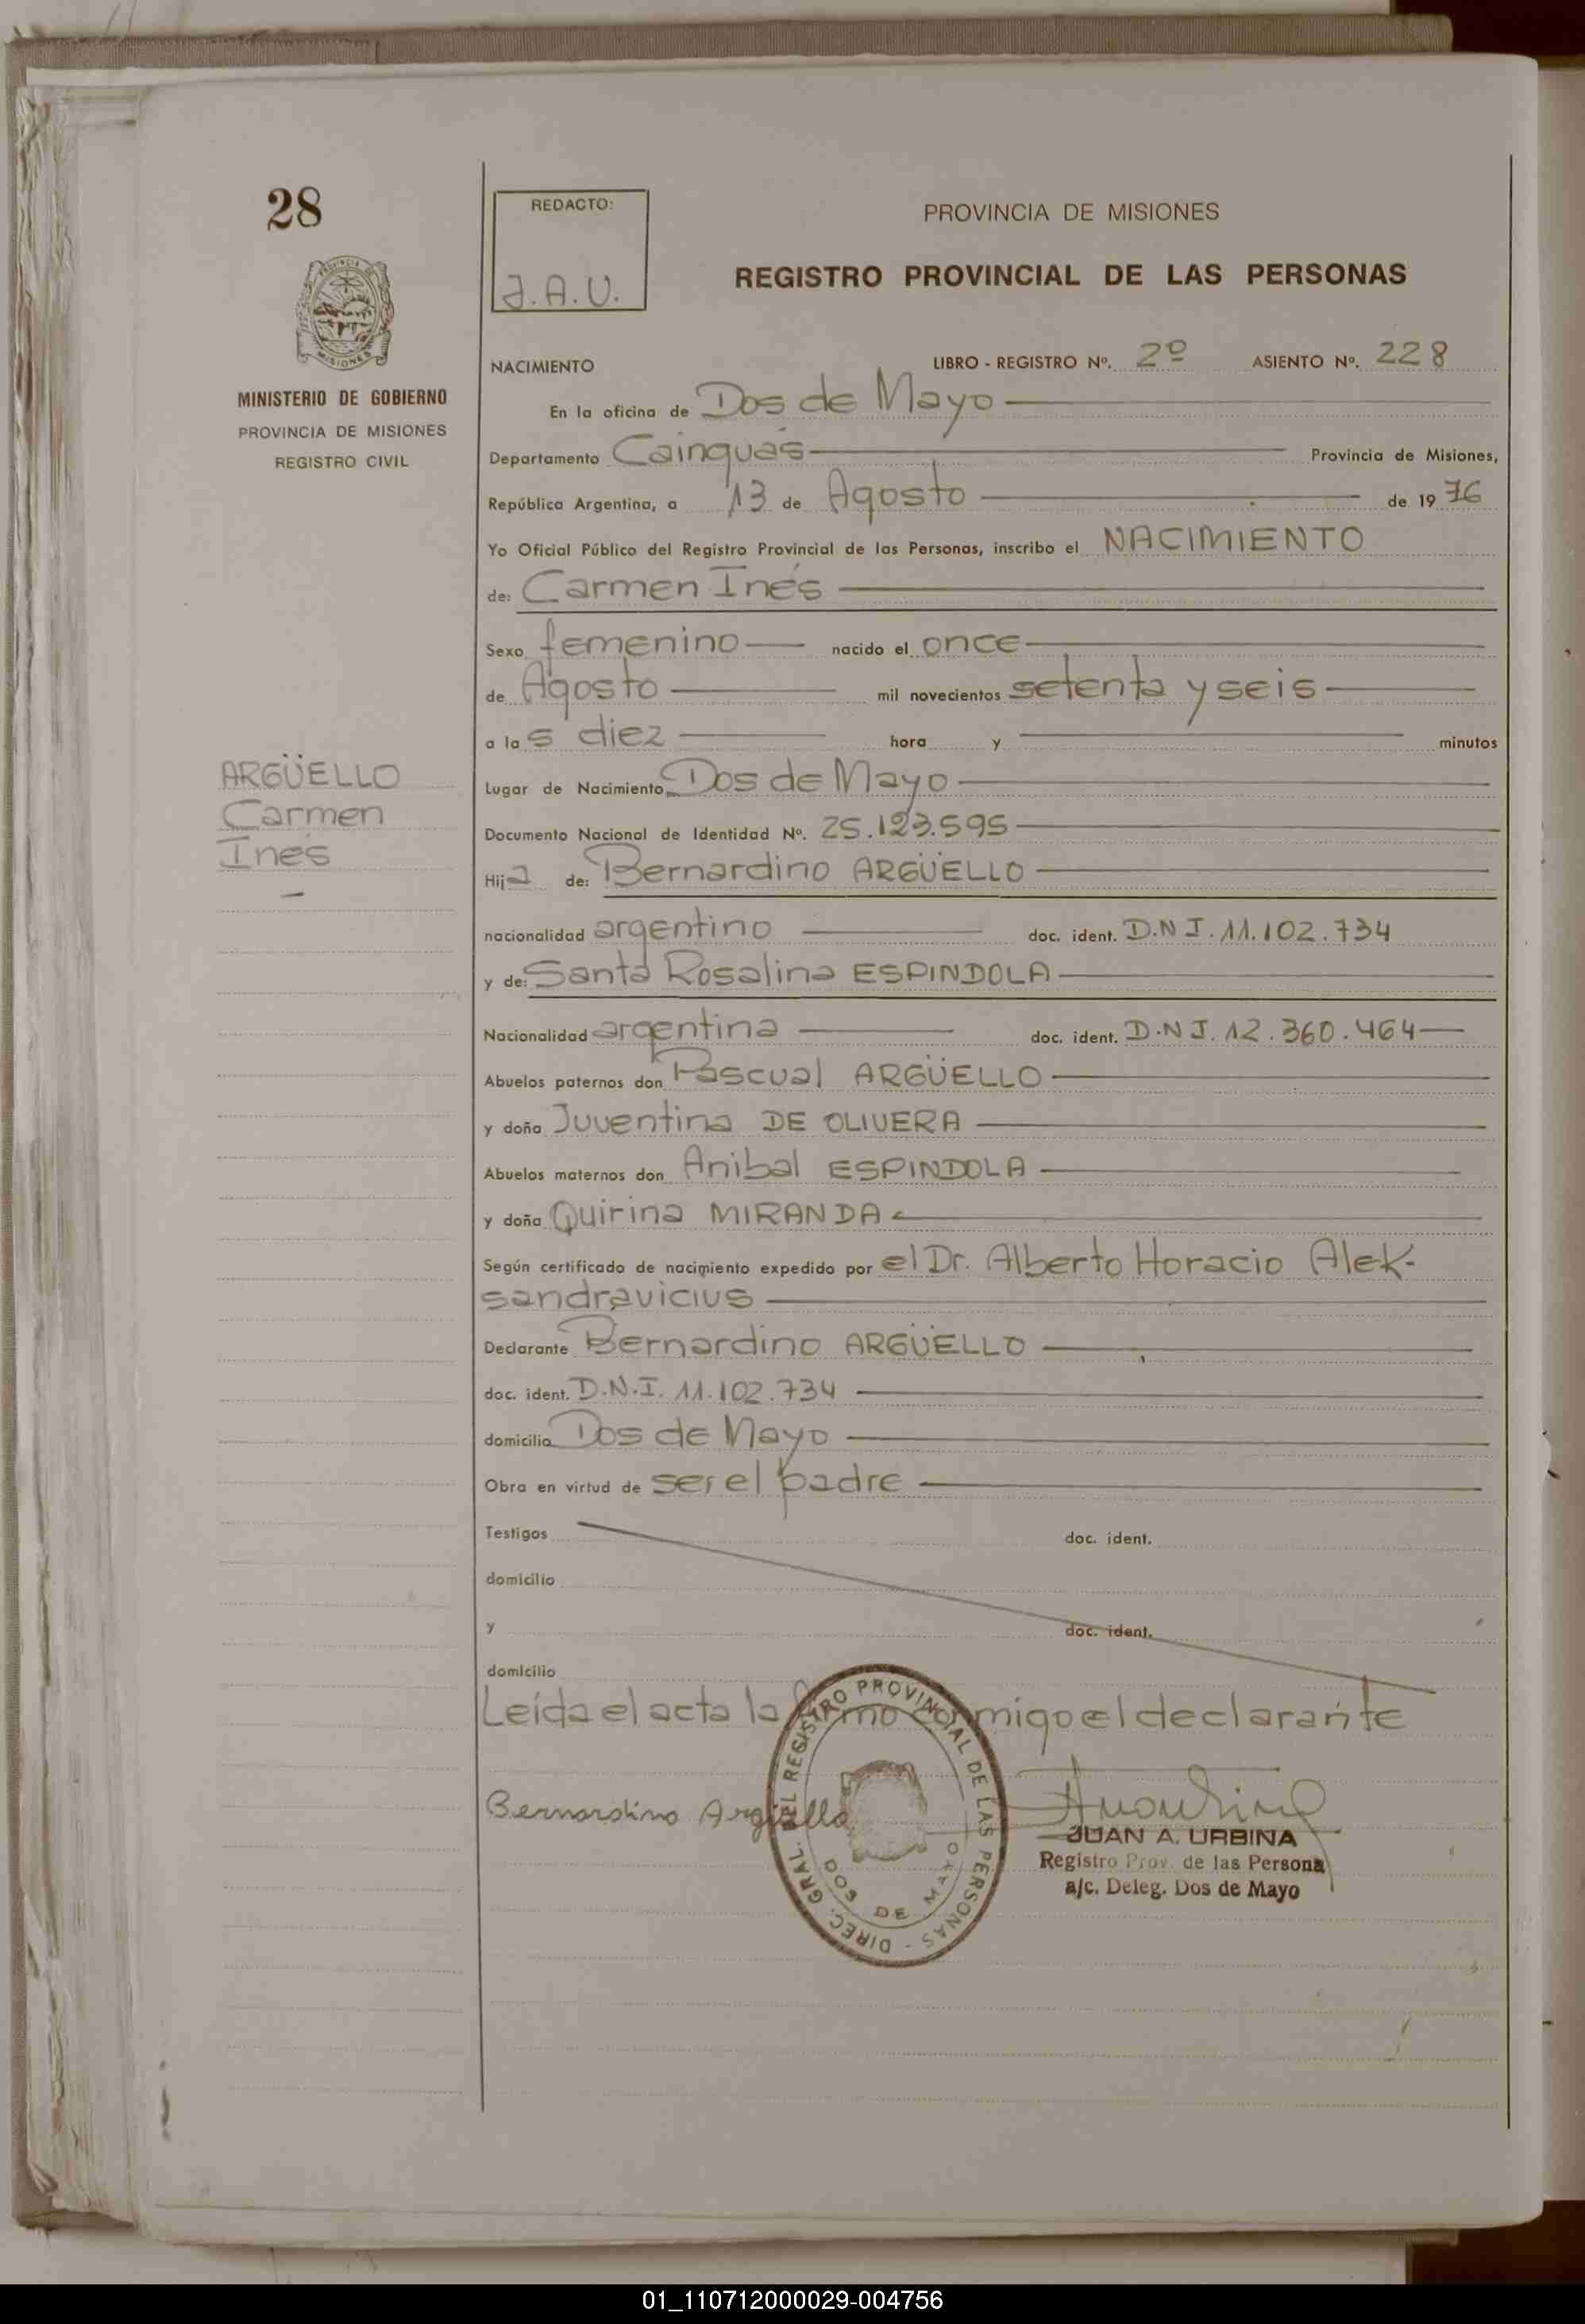 28
REDACTO:
J.A.U.
PROVINCIA DE MISIONES
REGISTRO PROVINCIAL DE LAS PERSONAS
PROVINCIA DE
MISIONES
MINISTERIO DE GOBIERNO
PROVINCIA DE MISIONES
REGISTRO CIVIL
NACIMIENTO LIBRO - REGISTRO Nº. 2º ASIENTO Nº. 228
En la oficina de Dos de Mayo
Departamento Cainguás Provincia de Misiones,
República Argentina, a 13 de Agosto de 1976
Yo Oficial Público del Registro Provincial de las Personas, inscribo el NACIMIENTO
de: Carmen Inés
Sexo femenino nacido el once
de Agosto mil novecientos setenta y seis
a las diez hora y minutos
ARGÜELLO
Carmen
Inés
Lugar de Nacimiento Dos de Mayo
Documento Nacional de Identidad Nº. 25.123.595
Hija de: Bernardino ARGÜELLO
nacionalidad argentino doc. ident. D.N I. 11.102.734
y de: Santa Rosalina ESPINDOLA
Nacionalidad argentina doc. ident. D.N I. 12.360.464
Abuelos paternos don Pascual ARGÜELLO
y doña Juventina DE OLIVERA
Abuelos maternos don Anibal ESPINDOLA
y doña Quirina MIRANDA
Según certificado de nacimiento expedido por el Dr. Alberto Horacio Alek-
sandravicius
Declarante Bernardino ARGÜELLO
doc. ident. D.N.I. 11.102.734
domicilio Dos de Mayo
Obra en virtud de ser el padre
Testigos doc. ident.
domicilio
y doc. ident.
domicilio
Leída el acta la firmo conmigo el declarante
Bernardino Argüello
DIREC. GRAL. DEL REGISTRO PROVINCIAL DE LAS PERSONAS -
DOS DE MAYO
JUAN A. URBINA
Registro Prov. de las Persona
a/c. Deleg. Dos de Mayo
01_110712000029-004756